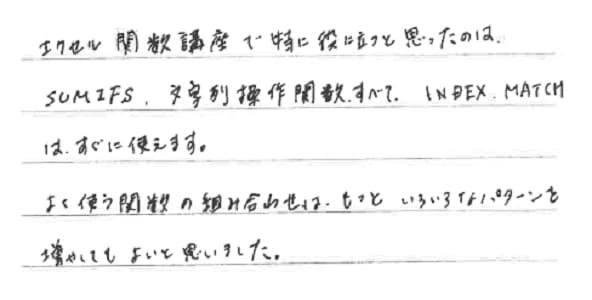 エクセル関数講座で特に役に立つと思ったのは、
SUMIFS、文字列操作関数すべて、INDEX、MATCH
は、すぐに使えます。
よく使う関数の組み合わせは、もっといろいろなパターンを
増やしてもよいと思いました。